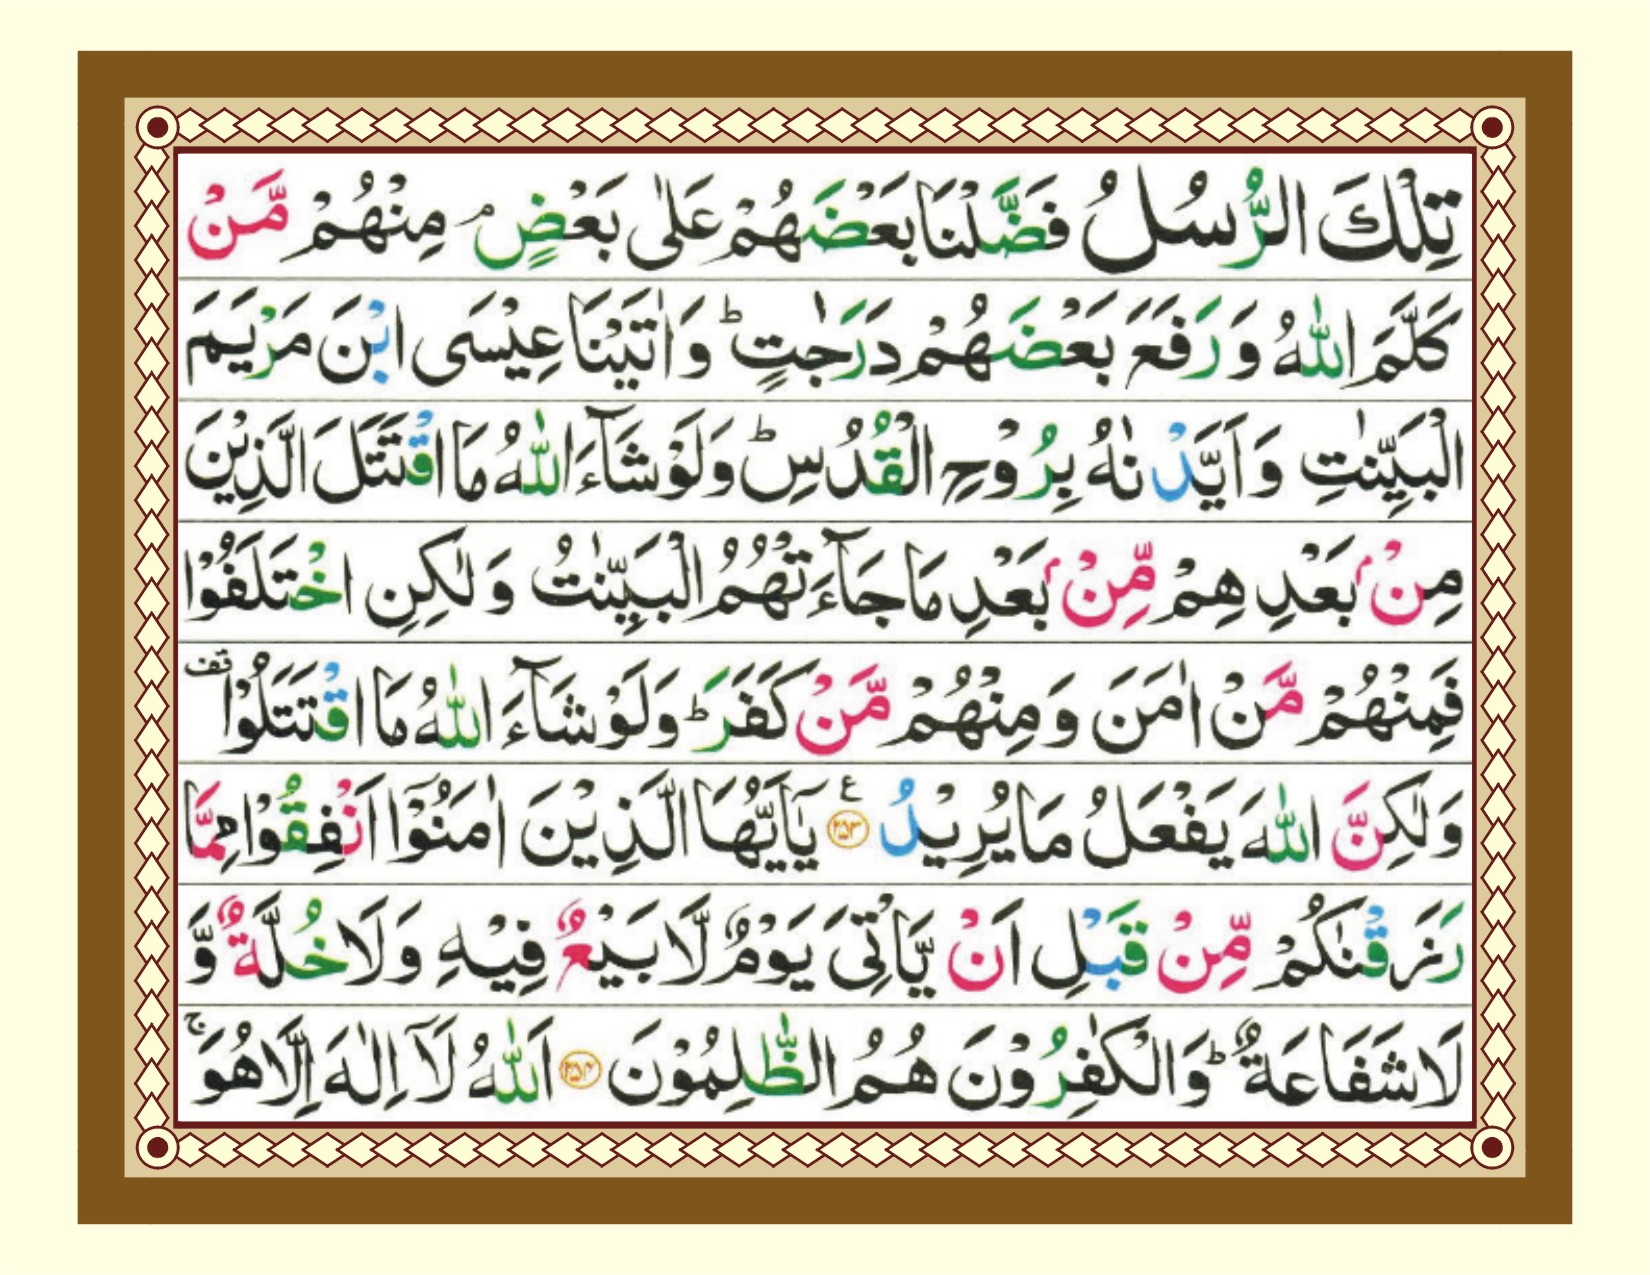 تِلْكَ الرُّسُلُ فَضَّلْنَا بَعْضَهُمْ عَلٰى بَعْضٍ ۘ مِنْهُمْ مَّنْ
كَلَّمَ اللّٰهُ وَرَفَعَ بَعْضَهُمْ دَرَجٰتٍ ؕ وَاٰتَيْنَا عِيْسَى ابْنَ مَرْيَمَ
الْبَيِّنٰتِ وَاَيَّدْنٰهُ بِرُوْحِ الْقُدُسِ ؕ وَلَوْ شَآءَ اللّٰهُ مَا اقْتَتَلَ الَّذِيْنَ
مِنْۢ بَعْدِهِمْ مِّنْۢ بَعْدِ مَا جَآءَتْهُمُ الْبَيِّنٰتُ وَلٰكِنِ اخْتَلَفُوْا
فَمِنْهُمْ مَّنْ اٰمَنَ وَمِنْهُمْ مَّنْ كَفَرَ ؕ وَلَوْ شَآءَ اللّٰهُ مَا اقْتَتَلُوْا قف
وَلٰكِنَّ اللّٰهَ يَفْعَلُ مَا يُرِيْدُ ع ۲۵۳ يٰۤاَيُّهَا الَّذِيْنَ اٰمَنُوْۤا اَنْفِقُوْا مِمَّا
رَزَقْنٰكُمْ مِّنْ قَبْلِ اَنْ يَّاْتِىَ يَوْمٌ لَّا بَيْعٌ فِيْهِ وَلَا خُلَّةٌ وَّ
لَا شَفَاعَةٌ ؕ وَالْكٰفِرُوْنَ هُمُ الظّٰلِمُوْنَ ۲۵۴ اَللّٰهُ لَاۤ اِلٰهَ اِلَّا هُوَ ۚ